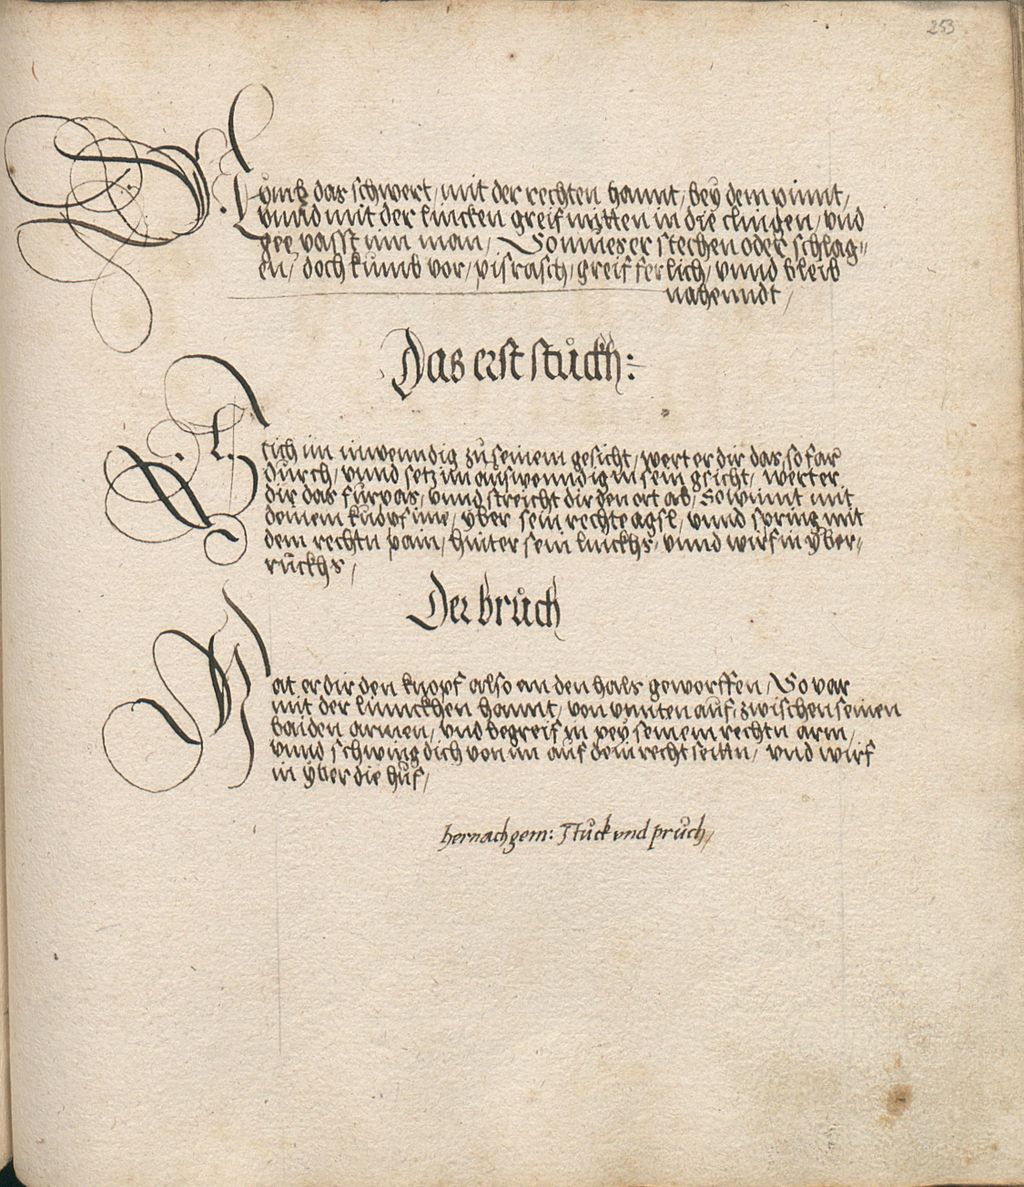 253
Nymb das schwert, mit der rechten hannt, bey dem pinnt,
vnnd mit der lincken greif mytten in die clingen, vnd
gee vasst inn man, So mueg er stechen oder schlag=
en, doch kumb vor, pis rasch, greif ferlich, vnnd bleib
nahenndt,
Das erst stuckh:
Stich im inwenndig zu seinem gesicht, wert er dir das, so far
durch, vnnd setz im auswenndig in sein gsicht, wert er
dir das furpas, vnnd streicht dir den ort ab, So winnt mit
deinem knopf ime, yber sein rechte agsl, vnnd spring mit
dem rechtn pain, hinter sein linckhs, vnnd wirf in yber=
ruckhs,
Der bruch
Hat er dir den knopf also an den hals geworffen, So var
mit der linnckhen hannt, von vnnten auf, zwischen seinen
baiden armen, vnd begreif in pey seinem rechtn arm,
vnnd schwing dich von im auf dein recht seittn, vnd wirf
in yber die huf,
hernach gem: stuck vnd pruch,